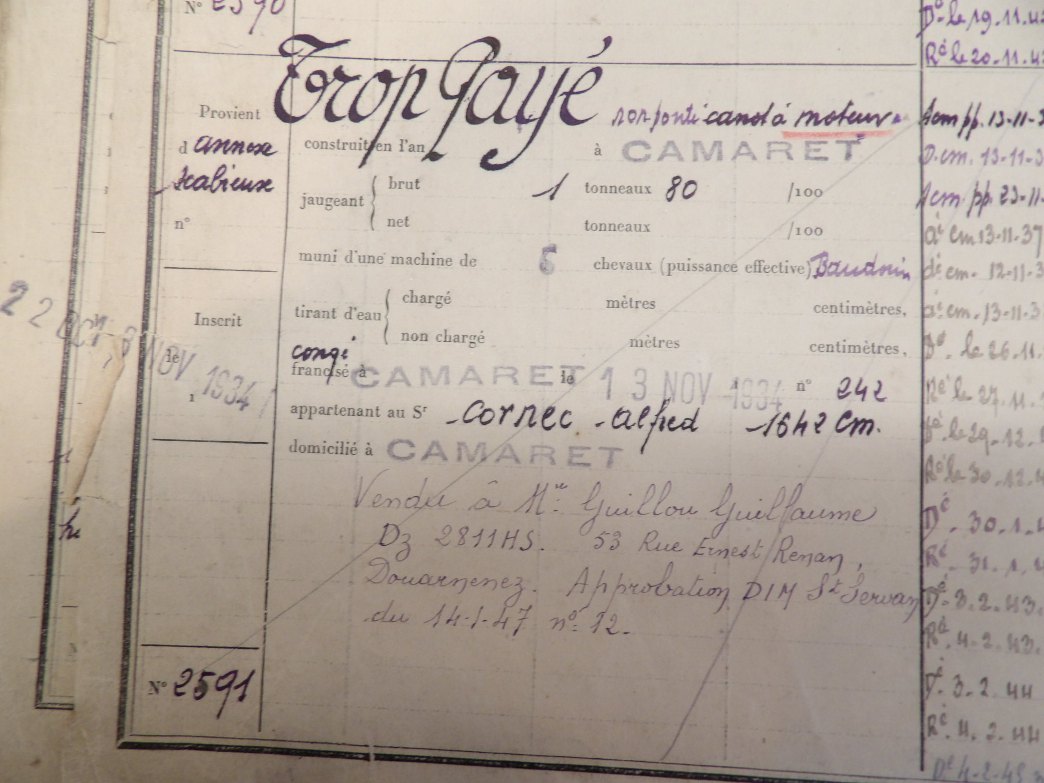 N° 2590
Trop Payé
non ponté canot à moteur
Provient
d annexe
Scabieuse
n°
construit en l'an
à CAMARET
jaugeant
brut 1 tonneaux 80 /100
net tonneaux /100
muni d'une machine de 6 chevaux (puissance effective) Baudouin
tirant d'eau
chargé mètres centimètres,
non chargé mètres centimètres,
Inscrit
le
22 OCT,
8 NOV 1934
1
congé
francisé à CAMARET le 13 NOV 1934 n° 242
appartenant au Sr Cornec Alfred 1642 Cm.
domicilié à CAMARET
Vendu à Mr Guillou Guillaume
Dz 2811HS. 53 Rue Ernest Renan,
Douarnenez. Approbation DIM St Servan
du 14-1-47 n° 12.
N° 2591
Dé le 19.11.4
Ré le 20.11.4
Acm pp. 13-11-3
D.cm. 13-11-3
Acm pp. 23-11-
aé cm 13-11-37
dé cm. 12-11-3
aé cm. 13-11-3
Dé. le 26.11.
Ré le 27.11.
Dé le 29.12.
Ré le 30.12.4
Dé. 30.1.4
Ré. 31.1.4
Dé. 3.2.43.
Ré. 4.2.43.
Dé. 3.2.44
Ré. 4.2.44